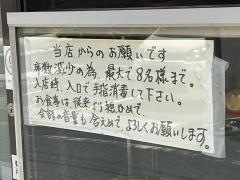 当店からのお願いです
席数減少の為、最大で8名様まで。
入店時、入口で手指消毒して下さい。
お食事は、従来より短かめで、
会話の音量も含めて、よろしくお願いします。